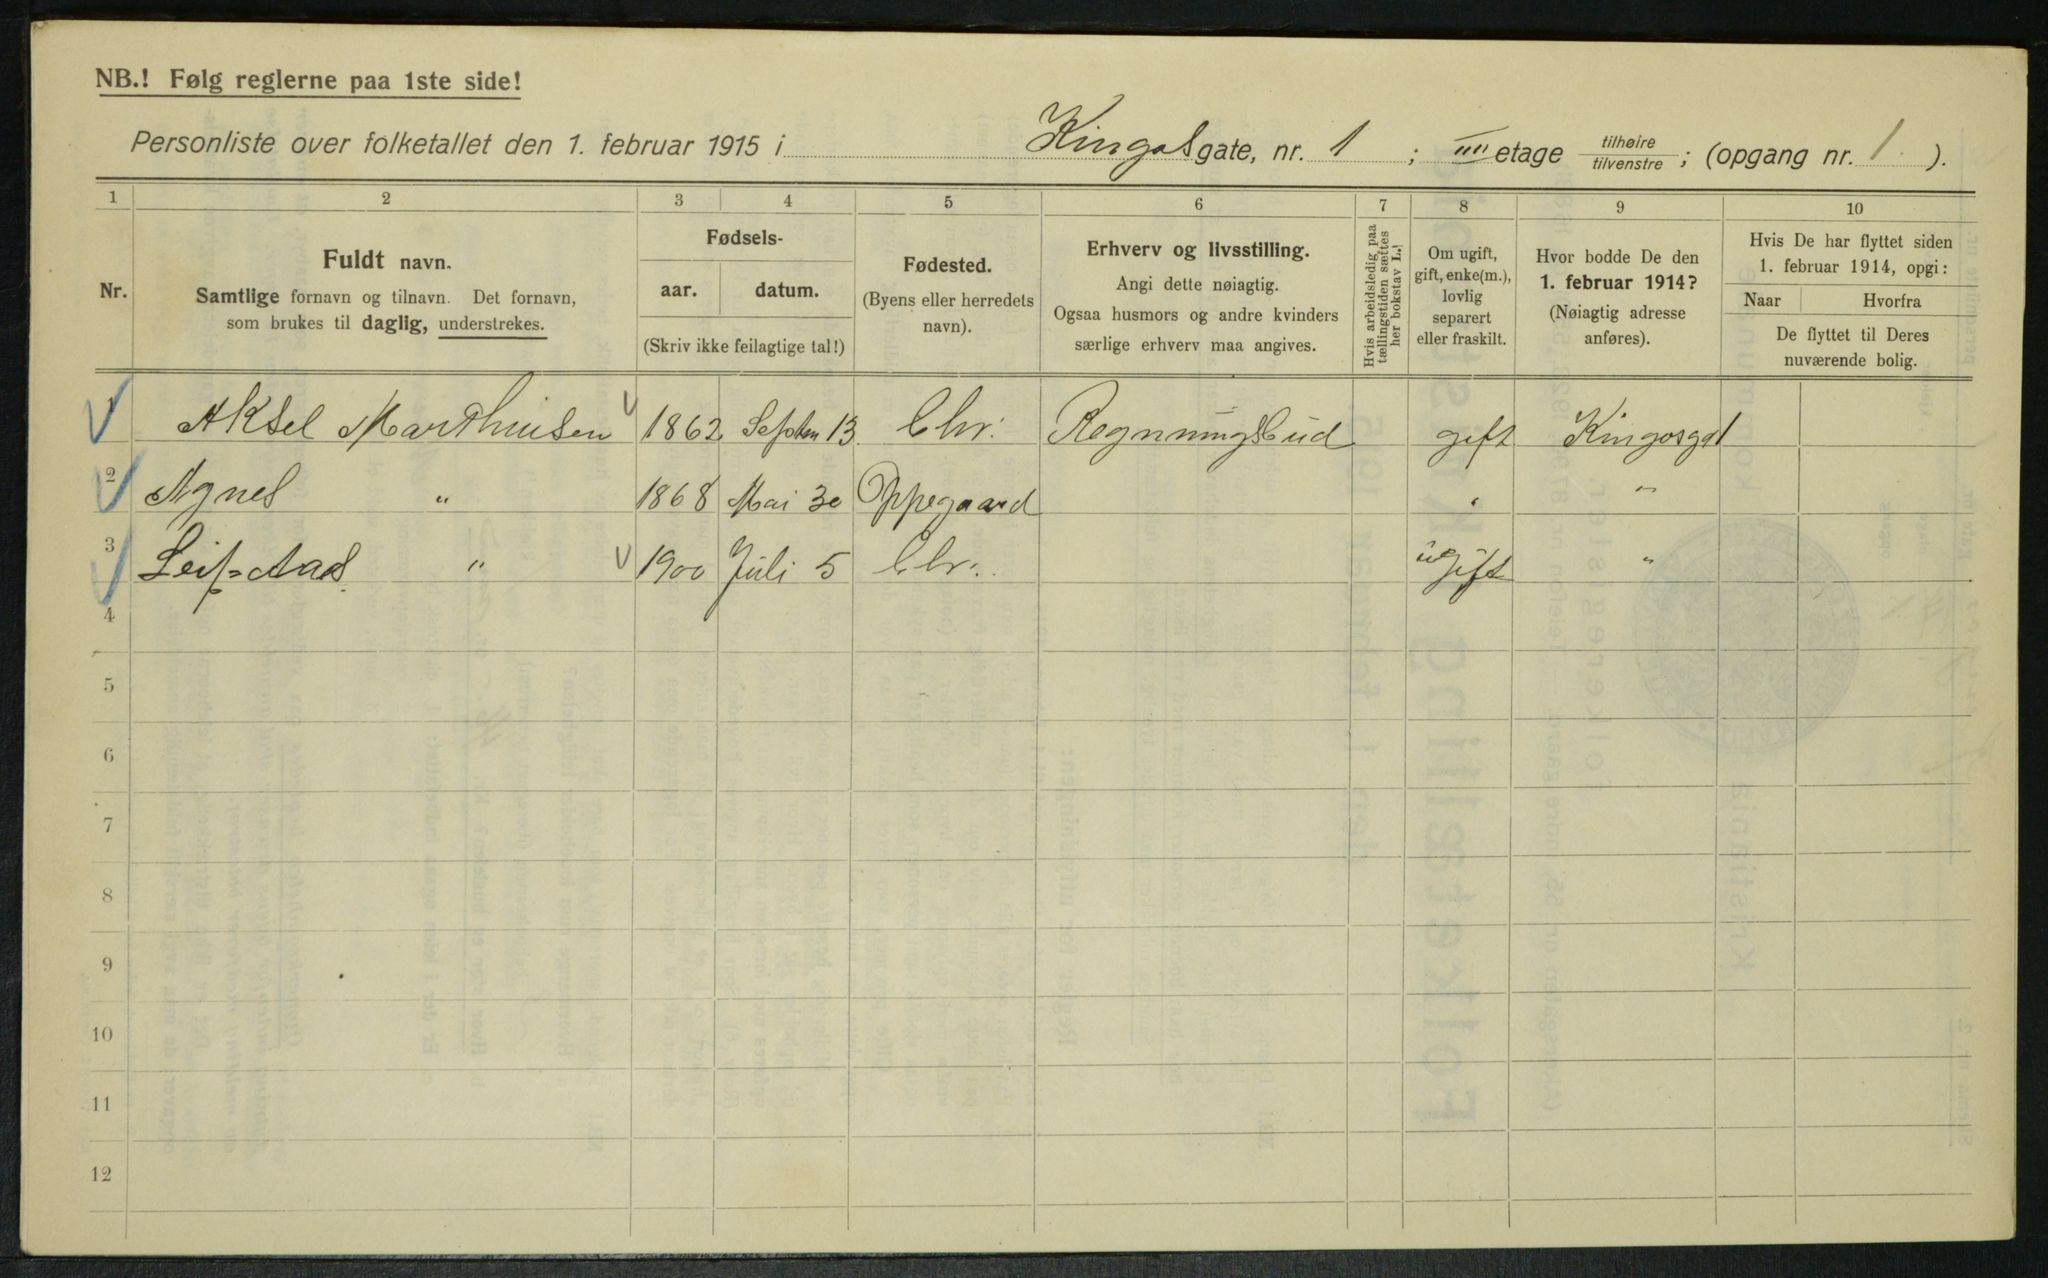 NB.! Følg reglerne paa 1ste side!
Personliste over folketallet den 1. februar 1915 i Kingosgate, nr. 1 ; IIII etage tilhøire tilvenstre ; (opgang nr. 1. ).
1 2 3 4 5 6 7 8 9 10
Nr.
Fuldt navn.
Samtlige fornavn og tilnavn. Det fornavn,
som brukes til daglig, understrekes.
Fødsels-
aar. datum.
(Skriv ikke feilagtige tal!)
Fødested.
(Byens eller herredets
navn).
Erhverv og livsstilling.
Angi dette nøiagtig.
Ogsaa husmors og andre kvinders
særlige erhverv maa angives.
Hvis arbeidsledig paa
tællingstiden sættes
her bokstav L.!
Om ugift,
gift, enke(m.),
lovlig
separert
eller fraskilt.
Hvor bodde De den
1. februar 1914?
(Nøiagtig adresse
anføres).
Hvis De har flyttet siden
1. februar 1914, opgi:
Naar Hvorfra
De flyttet til Deres
nuværende bolig.
1 Aksel Marthinsen 1862 Septem 13. Chr. Regningsbud gift Kingosgt 1
2 Agnes " 1868 Mai 30 Oppegaard " "
3 Leif " 1900 Juli 5 Chr. ugift "
4
5
6
7
8
9
10
11
12